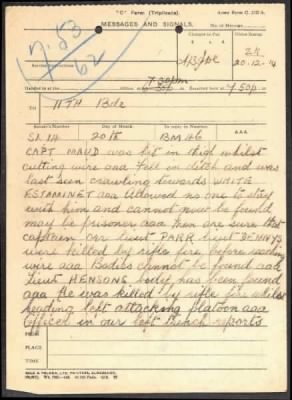 "C" Form (Triplicate).
Army Form C. 2123 A.
MESSAGES AND SIGNALS.
No. of Message
17.53
62
Charges to Pay
Office Stamp
Service Instructions
ZK
20.12.14
7.30pm
Handed in at the
Office
Received here at 7.50p.
TO 11TH Bde
Sender's Number
Day of Month
In reply to Number
AAA
20th
BM 46
CAPT MAUD was hit in thigh whilst
cutting wire aaa Fell in ditch and was
last seen crawling towards WHITE
ESTAMINET aaa Allowed no one to stay
with him and cannot now be found
may be prisoner aaa Men are sure that
captain lieut PARR lieut DEHNYS
were killed by rifle fire before reaching
wire aaa Bodies cannot be found aaa
Lieut HENSONS body has been found
aaa He was killed by rifle fire whilst
leading left attacking platoon aaa
Officer in our left trench reports
FROM
PLACE
TIME